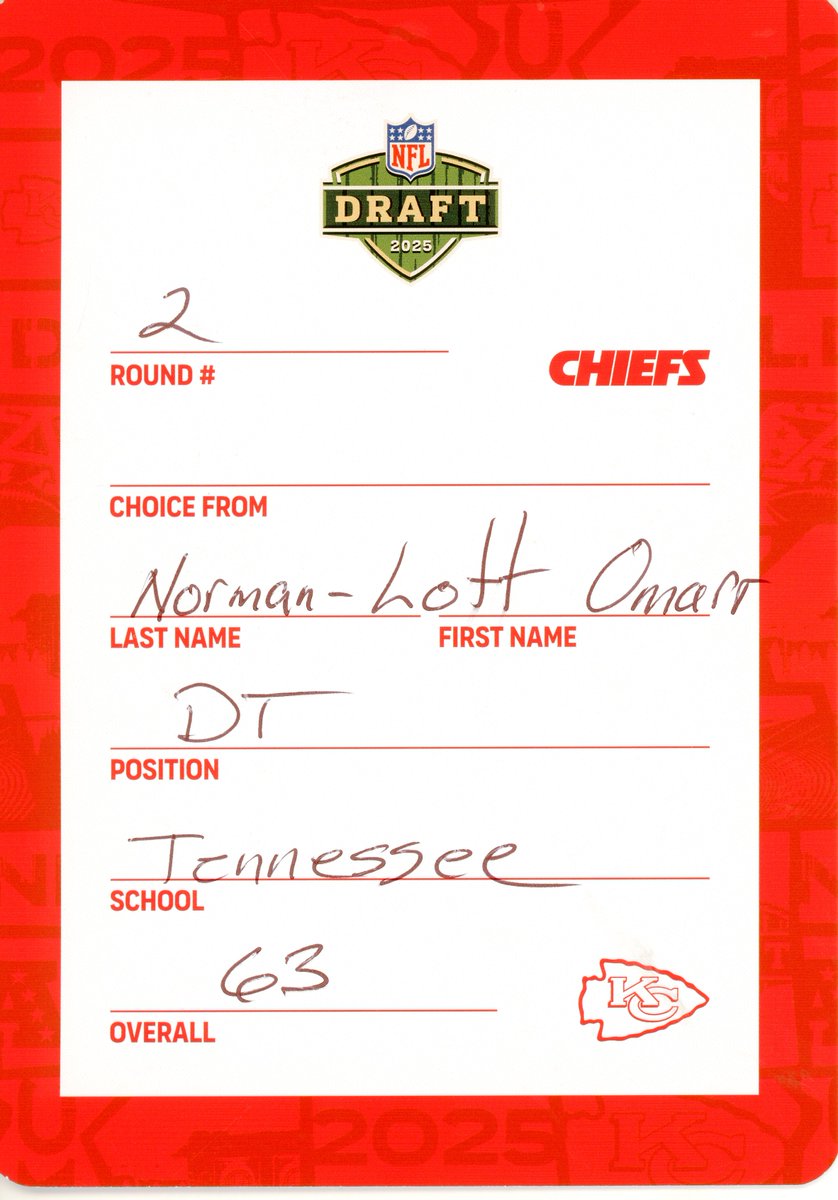 NFL
DRAFT
2025
2
ROUND #
CHIEFS
CHOICE FROM
Norman-Lott Omarr
LAST NAME FIRST NAME
DT
POSITION
Tennessee
SCHOOL
63
OVERALL
KC
2025